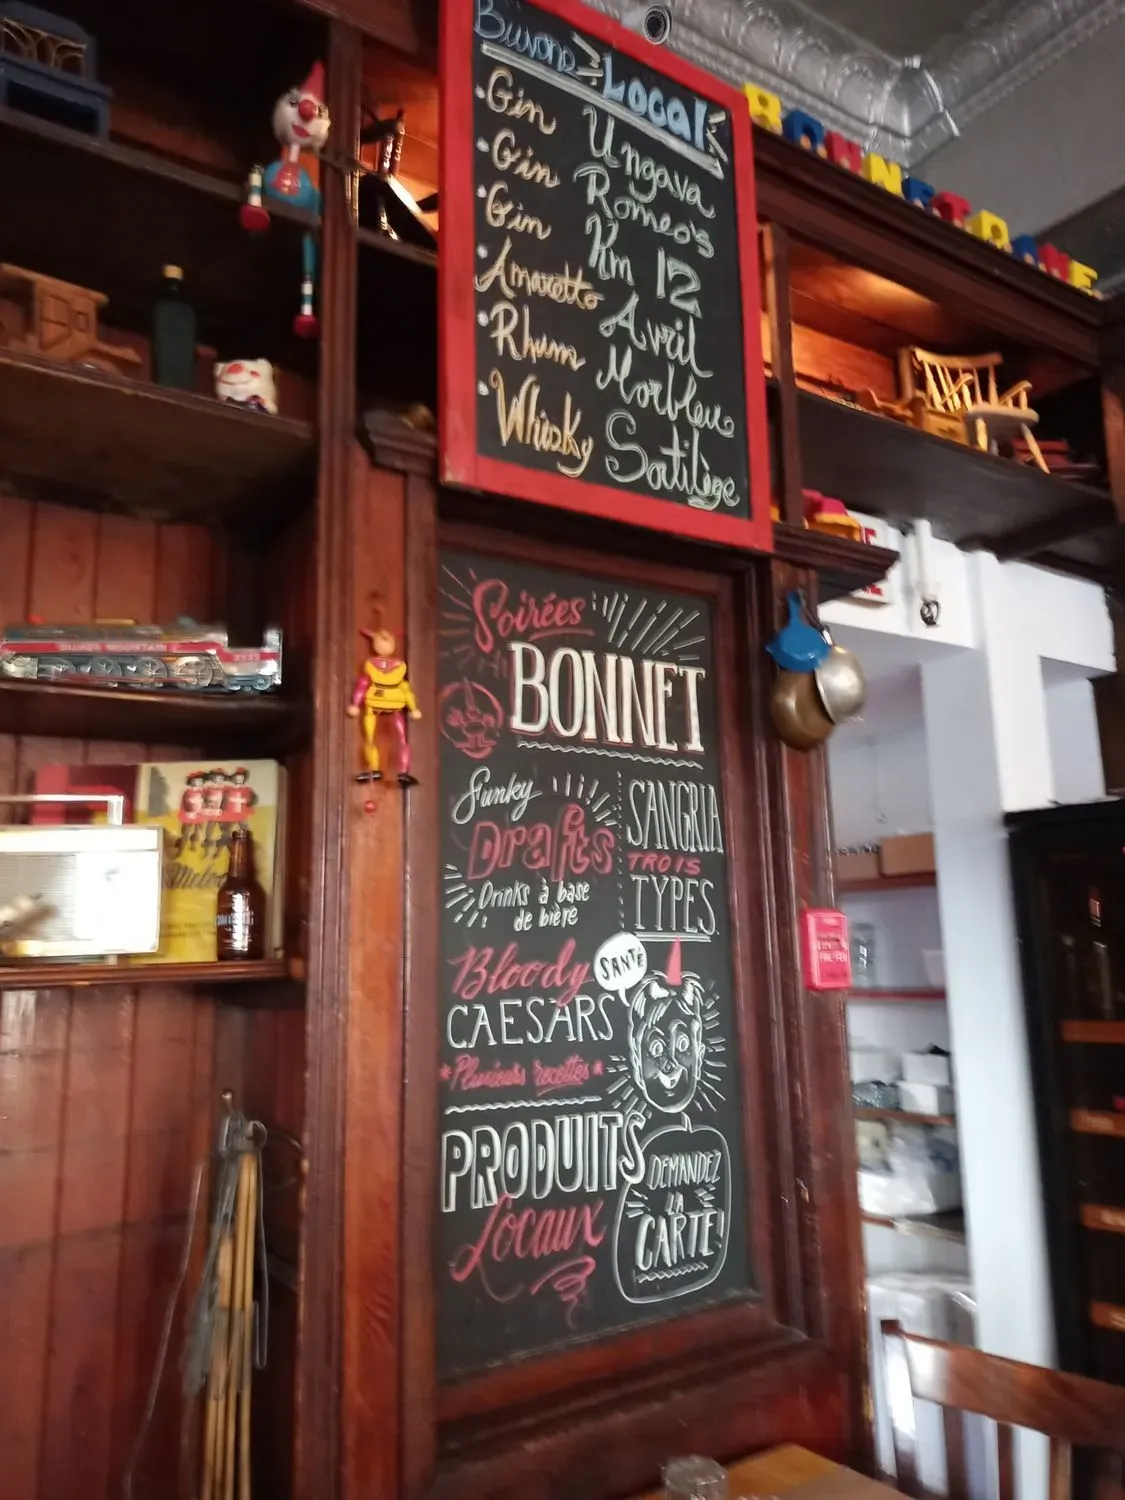 Buvons Local
• Gin Ungava
• Gin Romeo's
• Gin Km 12
• Amaretto Avril
• Rhum Morbleu
• Whisky Sortilège
BONNET D'ANE
Soirées
BONNET
Funky
Drafts
Drinks à base
de bière
SANGRIA
TROIS
TYPES
Bloody
CAESARS
*Plusieurs recettes*
SANTÉ
PRODUITS
Locaux
DEMANDEZ
LA
CARTE!